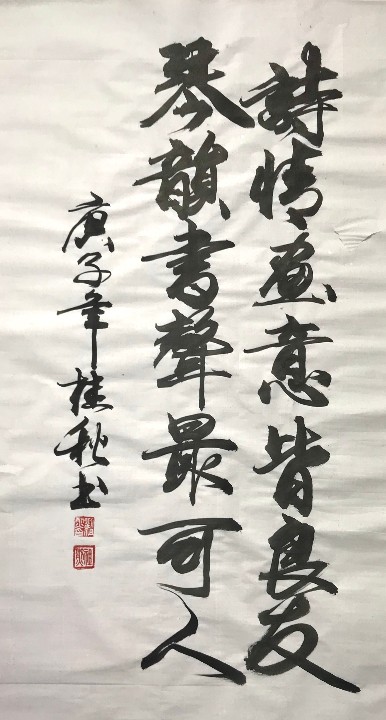 詩情画意皆良友
琴韻書聲最可人
庚子年桂秋书